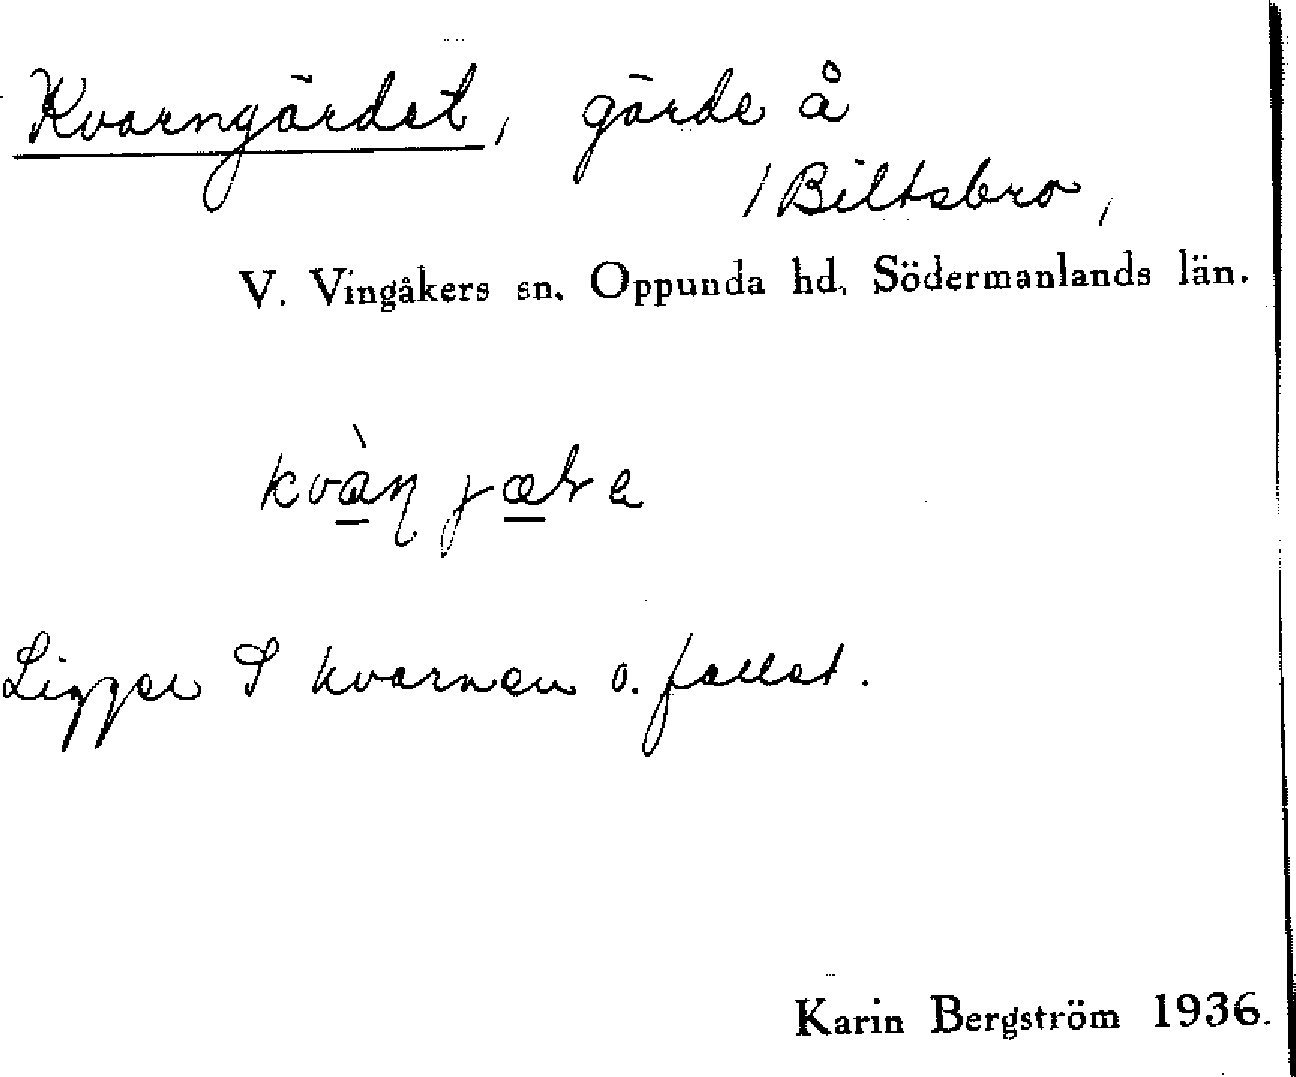 Kvarngärdet, gärde å
/ Biltsbro,
V. Vingåkers sn. Oppunda hd. Södermanlands län.
Ligger I kvarnen o. fallet.
Karin Bergström 1936.